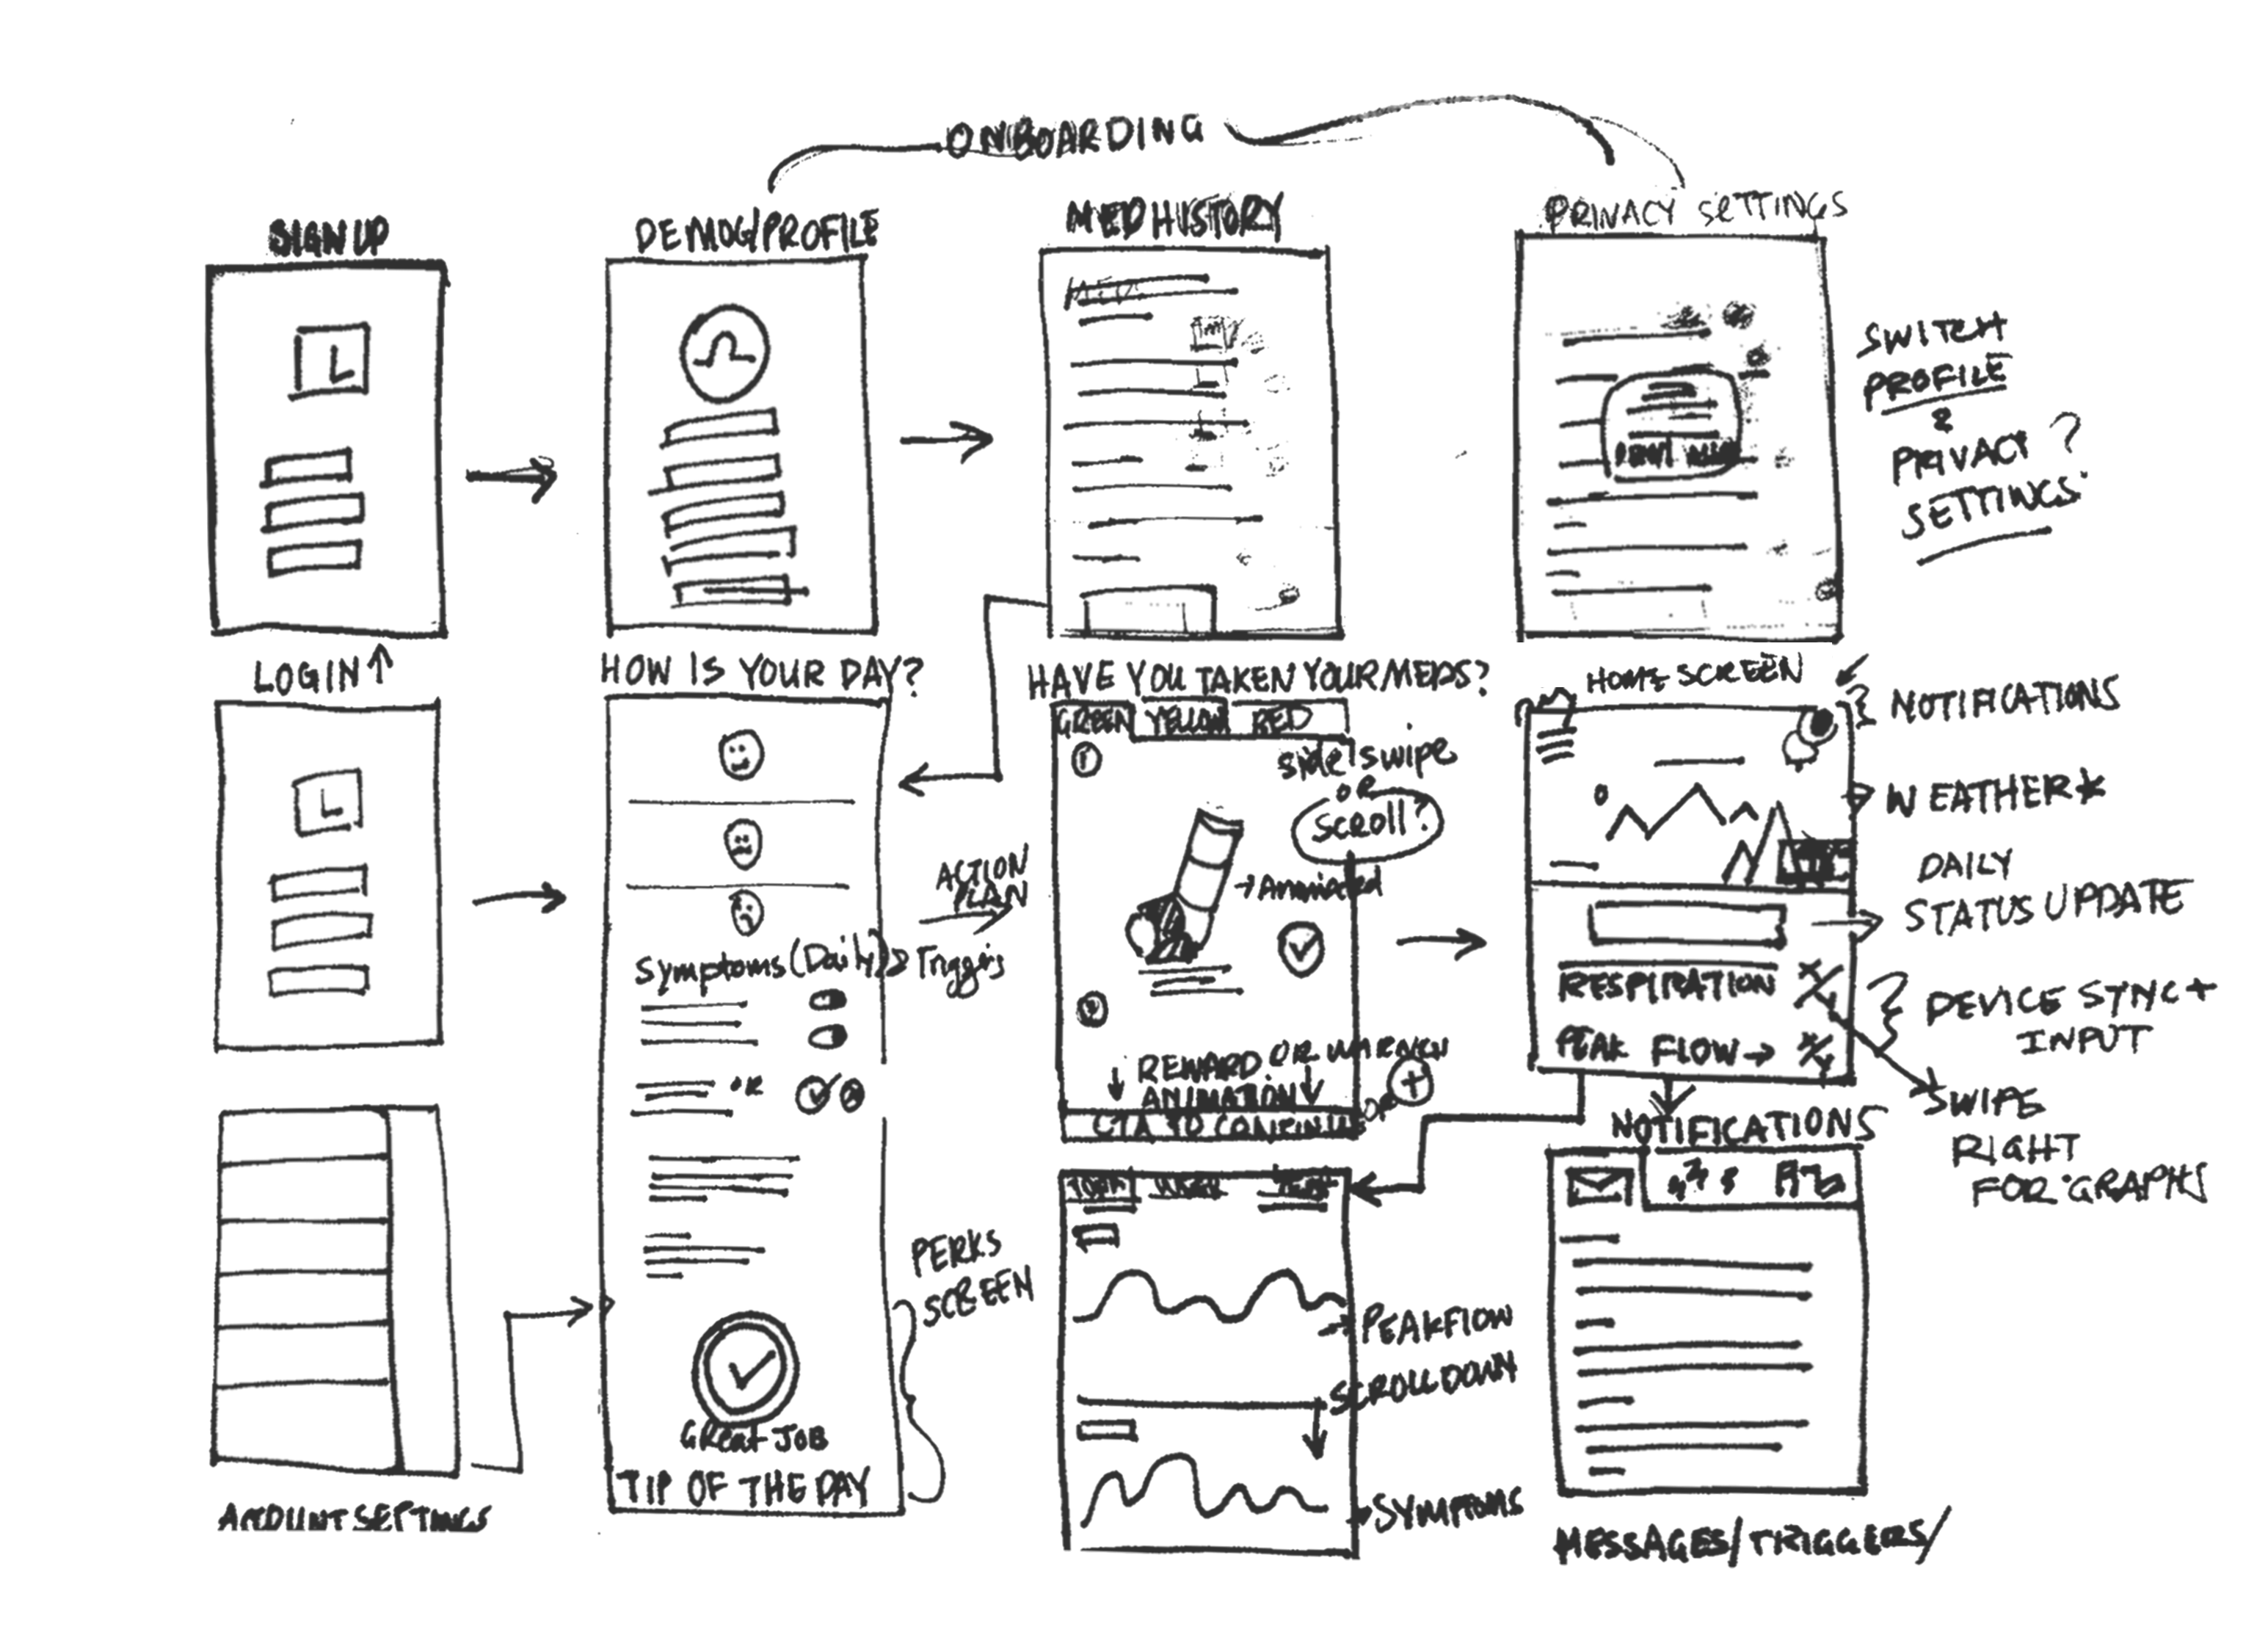 ONBOARDING
SIGN UP
DEMOG/PROFILE
MED HISTORY
PRIVACY SETTINGS
L
SWITCH
PROFILE
&
PRIVACY ?
SETTINGS
LOGIN ↑
L
HOW IS YOUR DAY?
Symptoms (Daily) & Triggers
OR
GREAT JOB
TIP OF THE DAY
PERKS
SCREEN
ACTION
PLAN
HAVE YOU TAKEN YOUR MEDS?
GREEN YELLOW RED
1
Side swipe
OR
Scroll?
→ Animated
2
REWARD OR WARNING
ANIMATION
CTA TO CONTINUE
OR +
HOME SCREEN
NOTIFICATIONS
WEATHER*
DAILY
STATUS UPDATE
RESPIRATION
PEAK FLOW →
DEVICE SYNC +
INPUT
SWIPE
RIGHT
FOR GRAPHS
→ PEAKFLOW
SCROLLDOWN
→ SYMPTOMS
NOTIFICATIONS
MESSAGES/TRIGGERS/
ACCOUNT SETTINGS